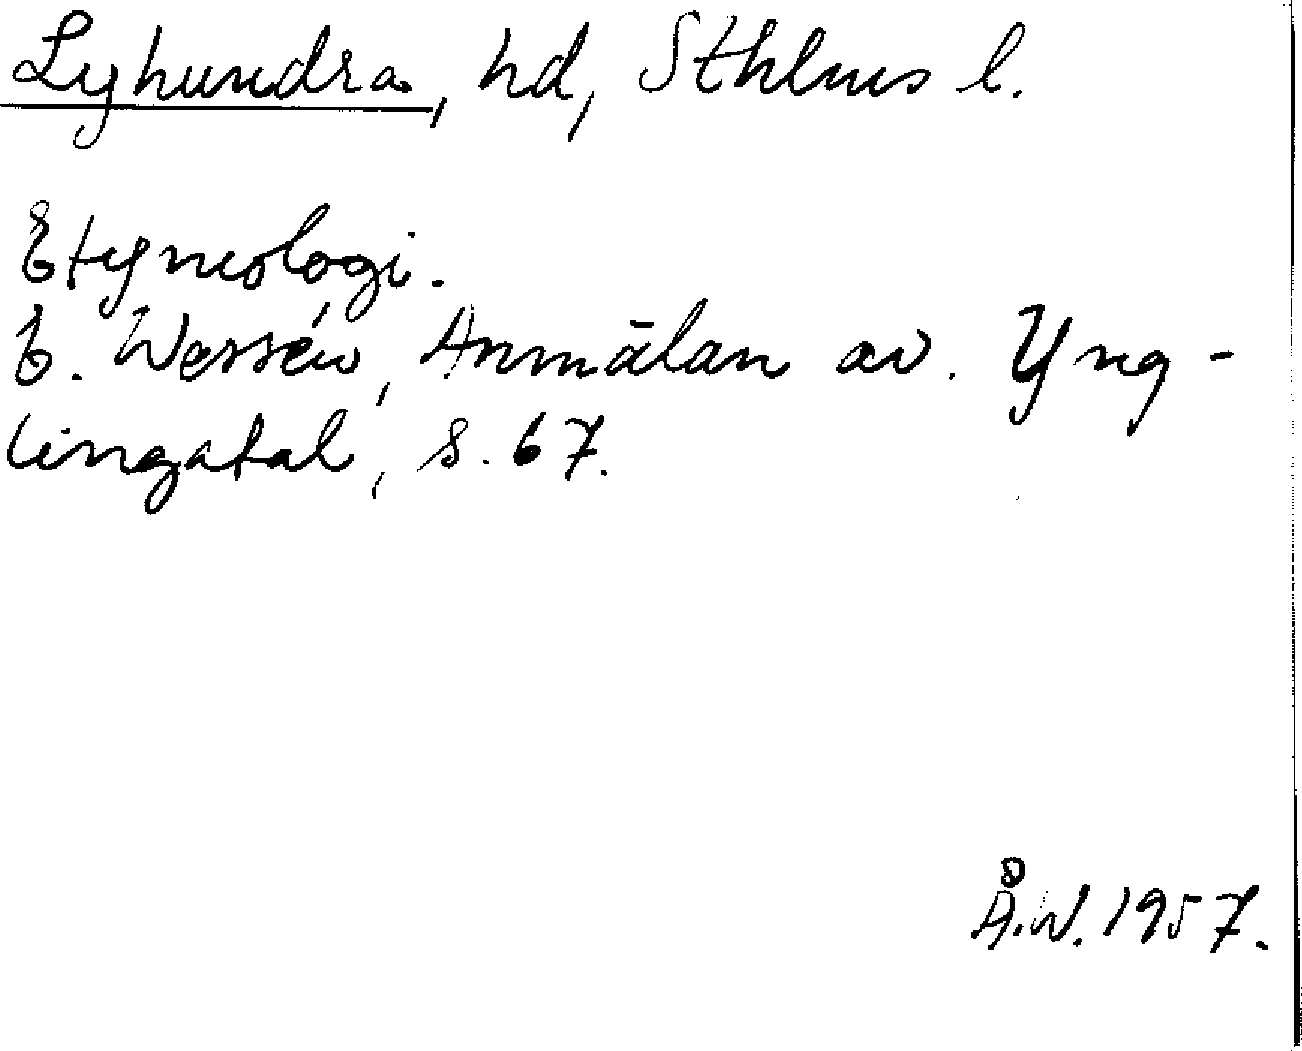 Lyhundra, hd, Sthlms l.
Etymologi.
E. Wessén, Anmälan av. Yng-
lingatal, s. 67.
Å.W. 1957.